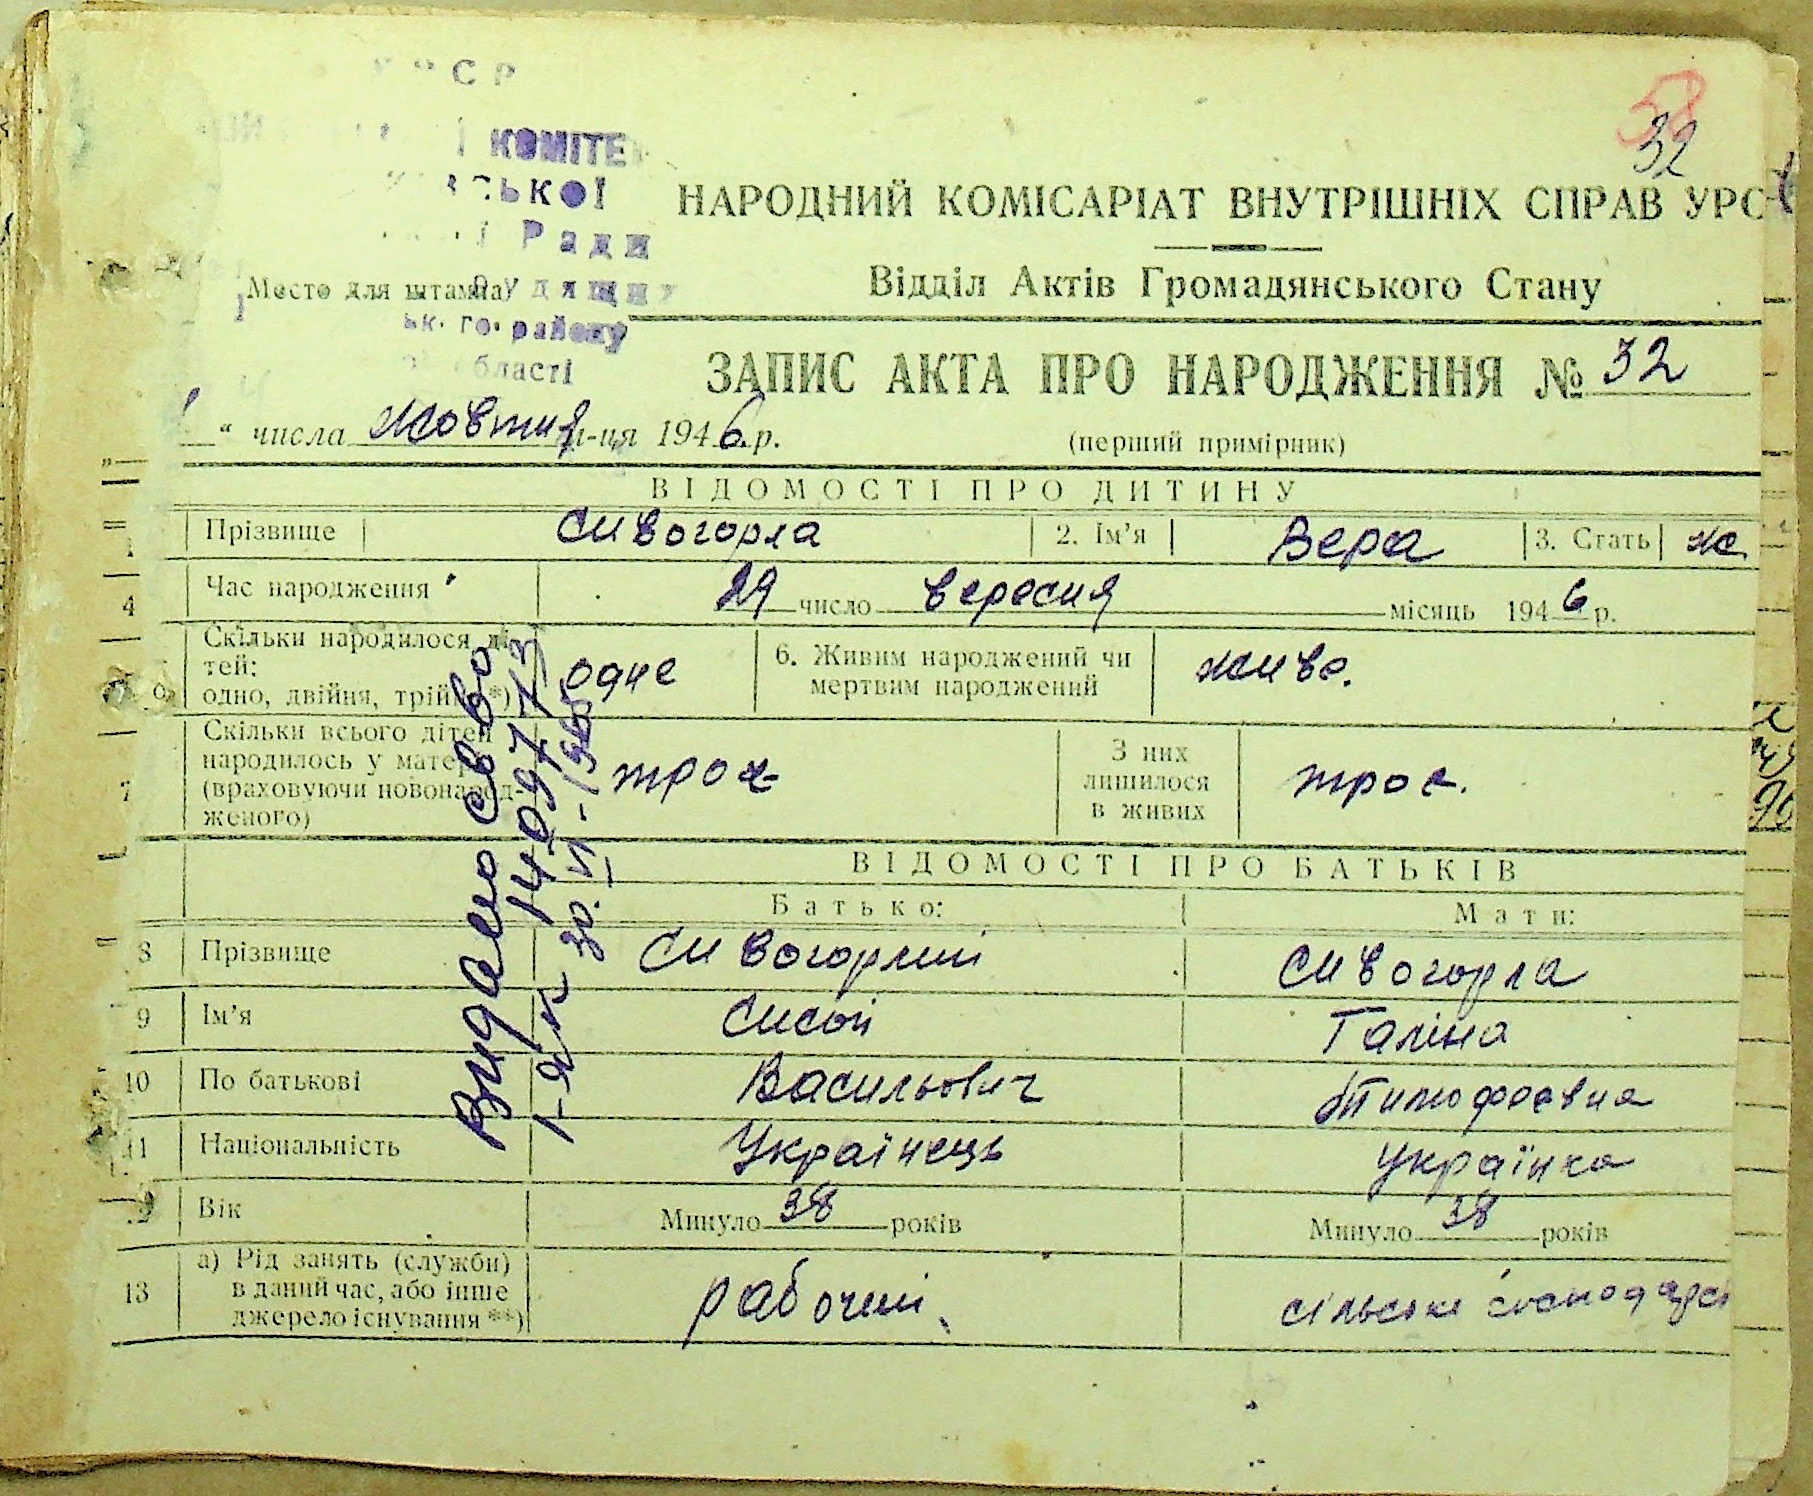 58
32
КОМІТЕ
ської
Ради
НАРОДНИЙ КОМІСАРІАТ ВНУТРІШНІХ СПРАВ УРС
Место для штампа
району
області
Відділ Актів Громадянського Стану
ЗАПИС АКТА ПРО НАРОДЖЕННЯ № 32
“ числа жовтня м-ця 1946 р.
(перший примірник)
ВІДОМОСТІ ПРО ДИТИНУ
Прізвище Сивогорла 2. Ім'я Вера 3. Стать ж
4 Час народження 29 число вересня місяць 1946 р.
Скільки народилося ді-
тей:
одно, двійня, трійня *) одне
6. Живим народжений чи
мертвим народжений живе.
7 Скільки всього дітей
народилось у матері
(враховуючи новонарод-
женого) трое
З них
лишилося
в живих трое.
Видано св во
1-ЯК 1409773
30.VI-1965
ВІДОМОСТІ ПРО БАТЬКІВ
Батько: Мати:
8 Прізвище Сивогорлий Сивогорла
9 Ім'я Сисой Галіна
10 По батькові Васильович Тимофеевна
11 Національність Українець Українка
Вік Минуло 38 років Минуло 38 років
13 а) Рід занять (служби)
в даний час, або інше
джерело існування **) рабочий сільське